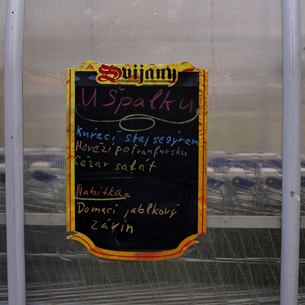 Svijany
U Špalku
Kuřecí stej se sýrem
Hovězí po franfursku
Cézar salát
Nabitka
Domací jablkový
závin